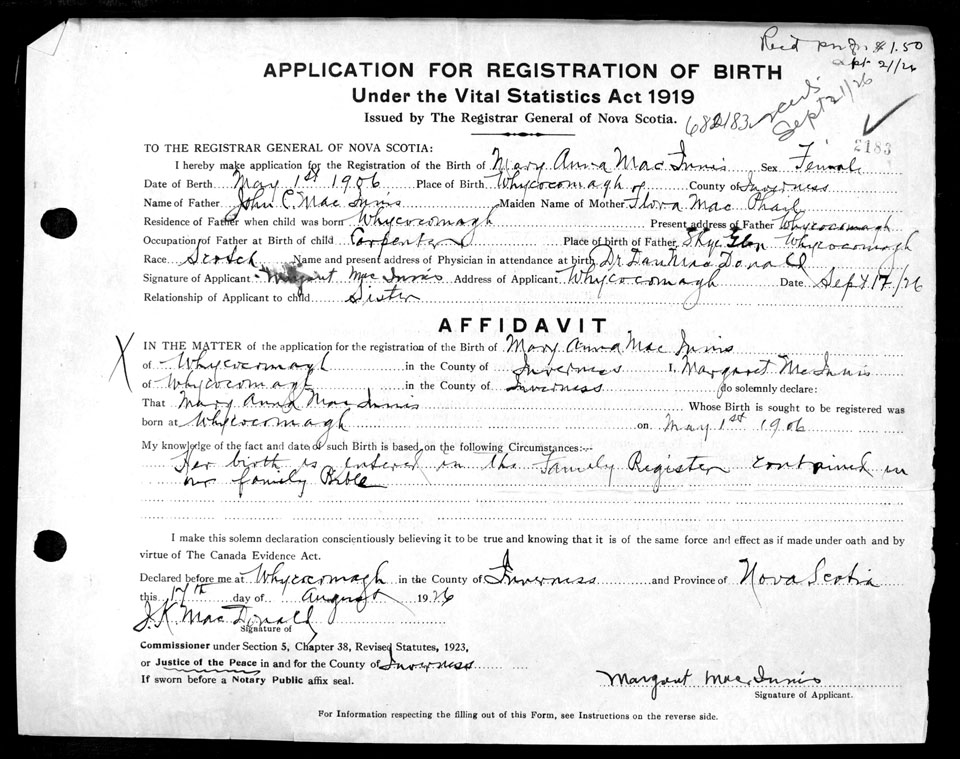 Rec'd $1.50
Sept 21/26
APPLICATION FOR REGISTRATION OF BIRTH
Under the Vital Statistics Act 1919
Issued by The Registrar General of Nova Scotia.
Sept 21/26
2183
TO THE REGISTRAR GENERAL OF NOVA SCOTIA:
I hereby make application for the Registration of the Birth of Mary Anna Mac Innis Sex Female
Date of Birth May 1st 1906 Place of Birth Whycocomagh County of Inverness
Name of Father John C. Mac Innis Maiden Name of Mother Flora Mac Phail
Residence of Father when child was born Whycocomagh Present address of Father Whycocomagh
Occupation of Father at Birth of child Carpenter Place of birth of Father Skye Glen Whycocomagh
Race Scotch Name and present address of Physician in attendance at birth Dr Dan Mac Donald
Signature of Applicant Margaret Mac Innis Address of Applicant Whycocomagh Date Sept 17/26
Relationship of Applicant to child Sister
AFFIDAVIT
X IN THE MATTER of the application for the registration of the Birth of Mary Anna Mac Innis
of Whycocomagh in the County of Inverness I, Margaret McInnis
of Whycocomagh in the County of Inverness do solemnly declare:
That Mary Anna Mac Innis Whose Birth is sought to be registered was
born at Whycocomagh on May 1st 1906
My knowledge of the fact and date of such Birth is based on the following Circumstances:--
Her birth is entered in the Family Register contained in
our family Bible
I make this solemn declaration conscientiously believing it to be true and knowing that it is of the same force and effect as if made under oath and by
virtue of The Canada Evidence Act.
Declared before me at Whycocomagh in the County of Inverness and Province of Nova Scotia
this 17th day of August 1926
J. K. Mac Donald
Signature of
Commissioner under Section 5, Chapter 38, Revised Statutes, 1923,
or Justice of the Peace in and for the County of Inverness
If sworn before a Notary Public affix seal.
Margaret Mac Innis
Signature of Applicant.
For Information respecting the filling out of this Form, see Instructions on the reverse side.